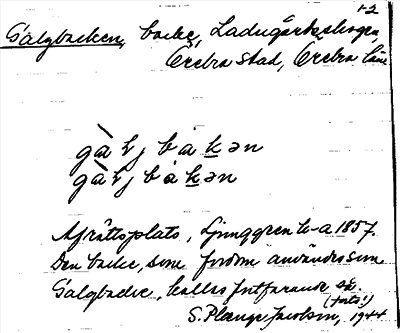 1-2
Galgbacken, backe, Ladugårdsskogen
Örebro stad, Örebro län
gàɫj bakən
gàɫj bakən
Afrättsplats, Ljunggren h-a 1857.
Den backe, som fordom användes som
Galgbacke, kallas fortfarande så.
(forts!)
S. Plænge Jacobson, 1944